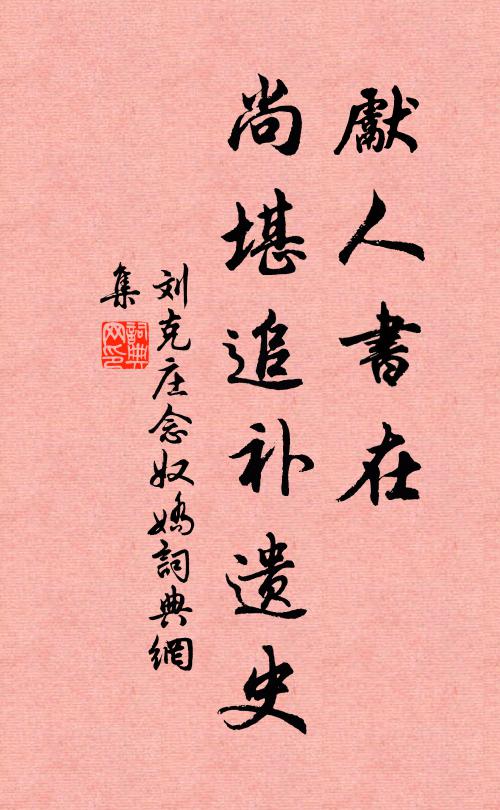 獻人書在
尚堪追补遗史
刘克庄念奴嬌詞典網
集
詞典网印